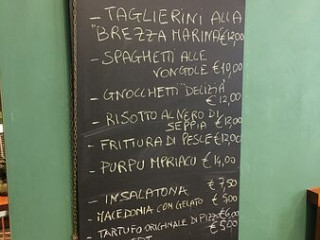 - TAGLIERINI ALLA
"BREZZA MARINA €12,00
- SPAGHETTI ALLE
VONGOLE €10,00
- GNOCCHETTI "DELIZIA"
€12,00
- RISOTTO AL NERO DI
SEPPIA €13,00
- FRITTURA DI PESCE €12,00
- PURPU MPRIACU €14,00
- INSALATONA €7,50
- MACEDONIA CON GELATO €5,00
- TARTUFO ORIGINALE DI PIZZO €6,00
€5,00